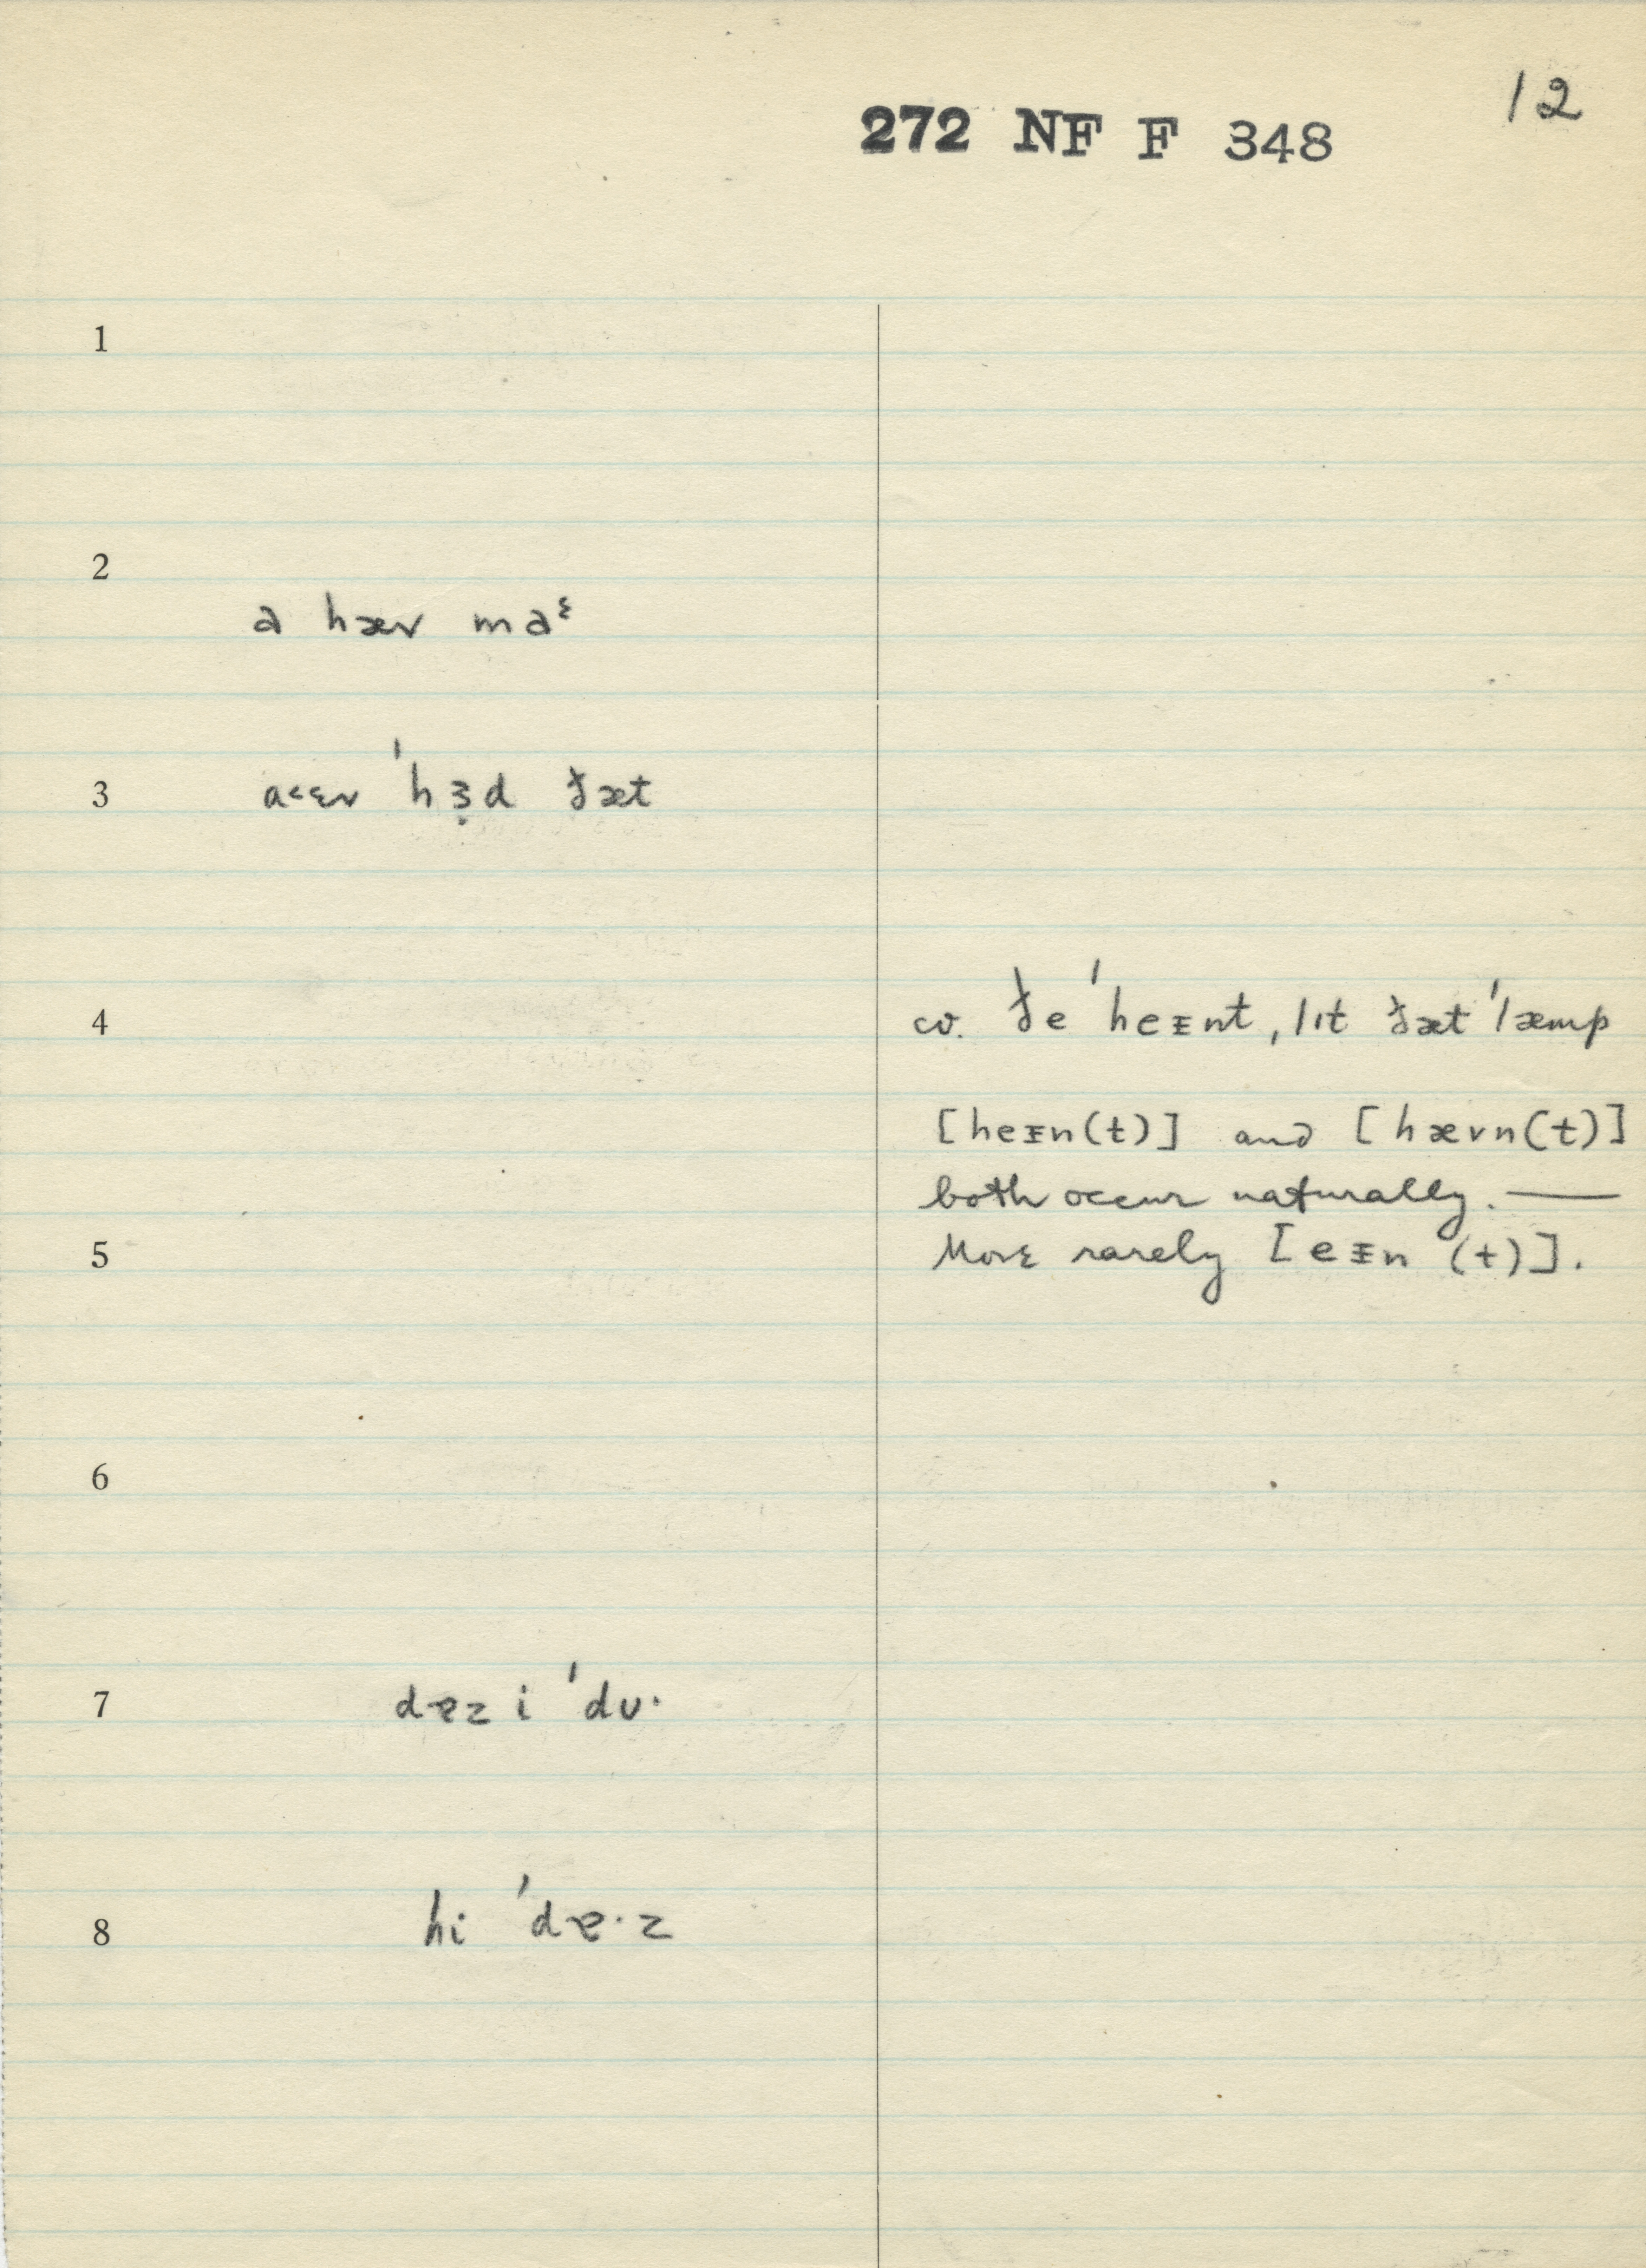 12
272 NF F 348
1
2
a hæv maᵋ
3
a˂ɛv ˈhɜ̣d ðæt
4
cv. ðe ˈheᵻnt, lɪt ðæt ˈlæmp
[heᵻn(t)] and [hævn(t)]
both occur naturally. —
5
More rarely [eᵻn (t)].
6
7
dɐz i ˈdᴜ·
8
hi ˈdɐ·z